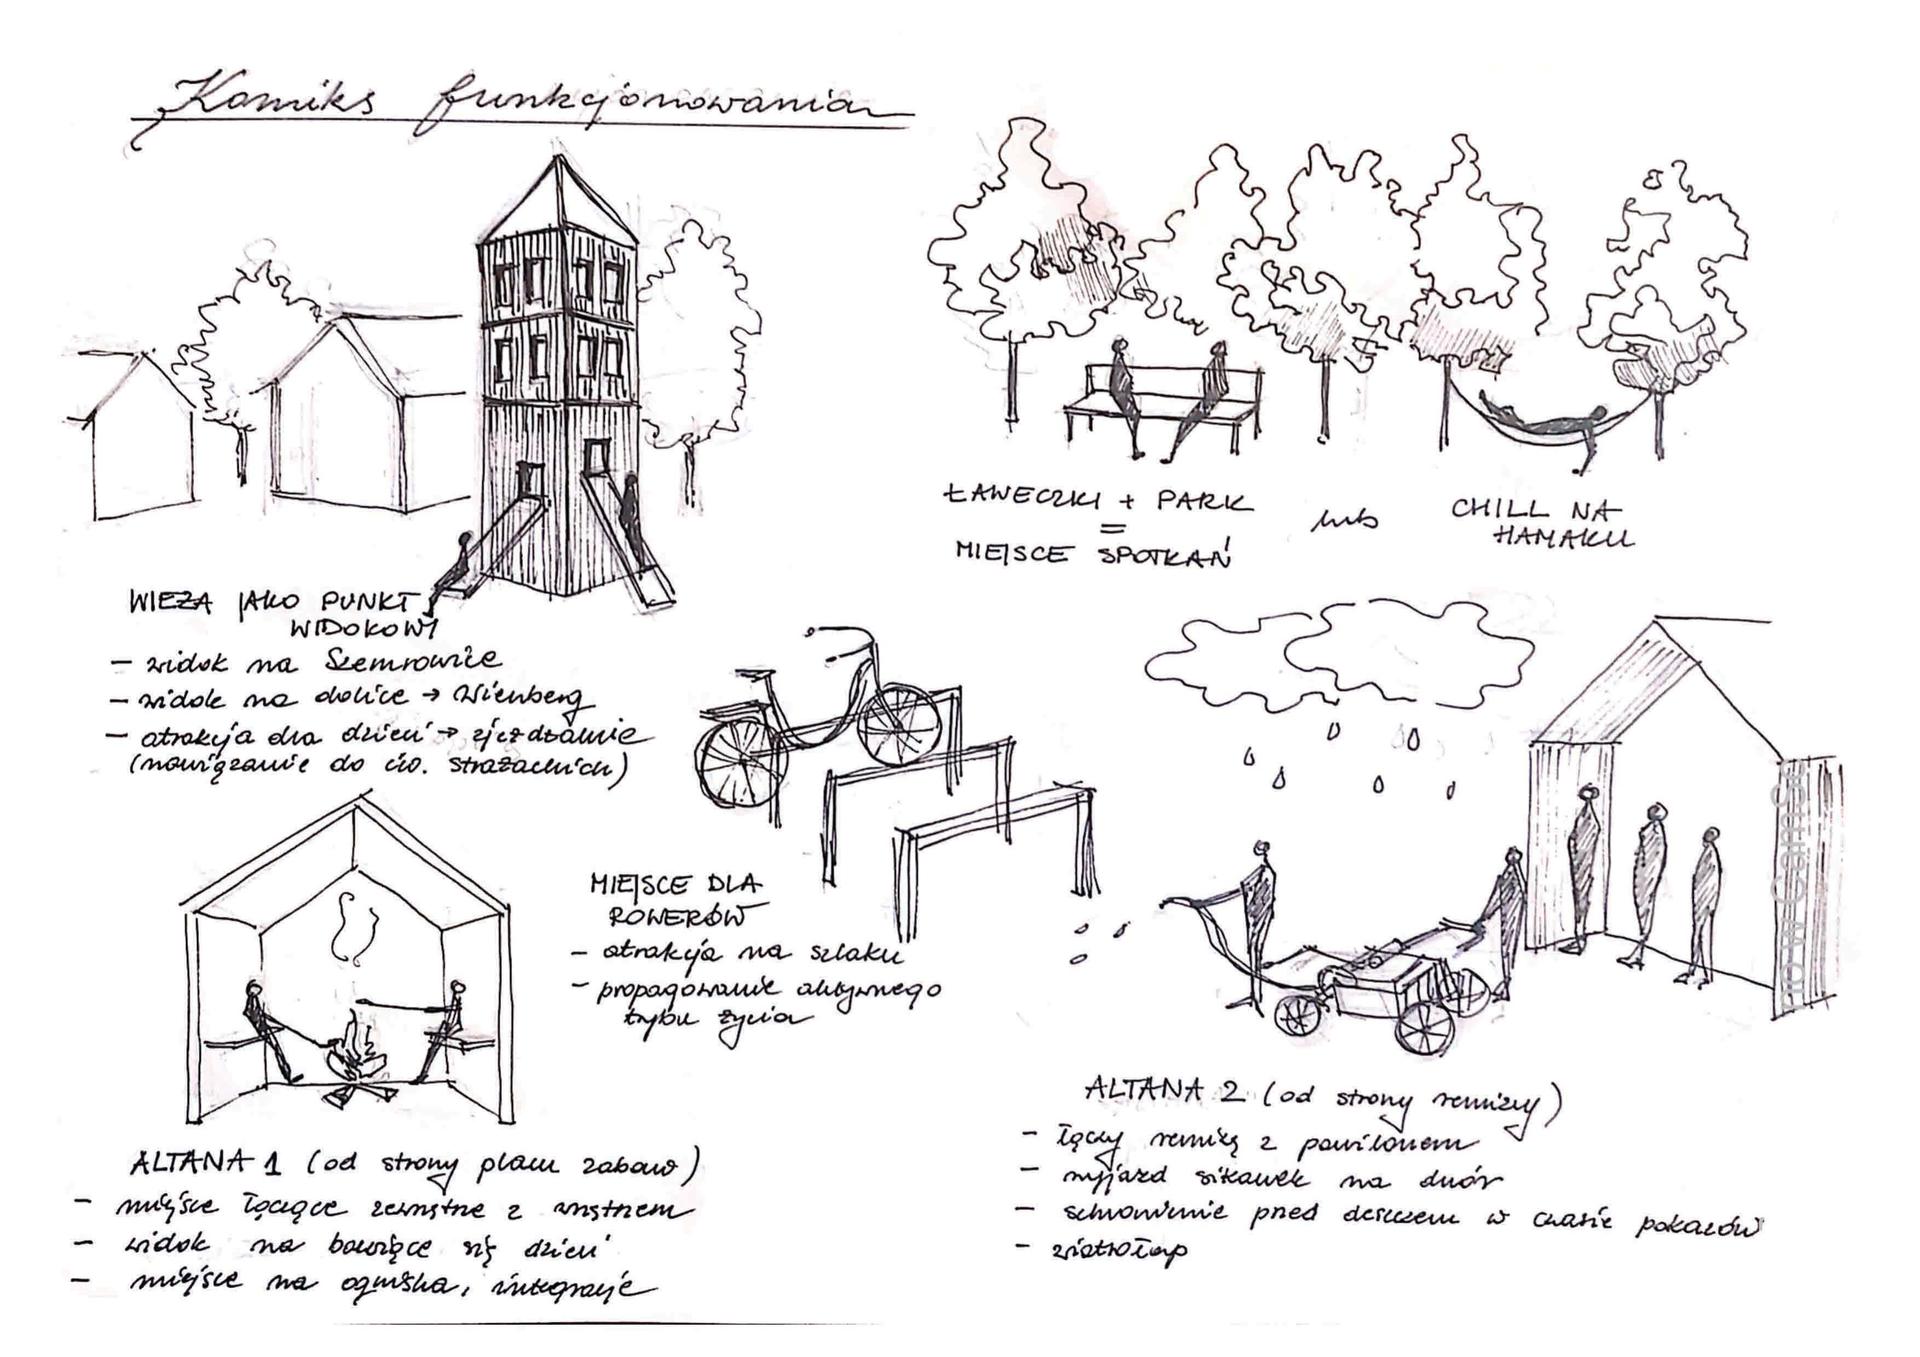 Komiks funkcjonowania
WIEŻA JAKO PUNKT
WIDOKOWY
- widok na Szemrowice
- widok na dolice → Wienberg
- atrakcja dla dzieci → zjeżdżanie
(nawiązanie do ćw. strażackich)
ŁAWECZKI + PARK
=
MIEJSCE SPOTKAŃ
lub
CHILL NA
HAMAKU
MIEJSCE DLA
ROWERÓW
- atrakcja na szlaku
- propagowanie aktywnego
trybu życia
ALTANA 1 (od strony placu zabaw)
- miejsce łączące zewnętrze z wnętrzem
- widok na bawiące się dzieci
- miejsce na ogniska, integracje
ALTANA 2 (od strony remizy)
- łączy remizę z pawilonem
- wyjazd sikawek na dwór
- schronienie przed deszczem w czasie pokazów
- wiatrołap